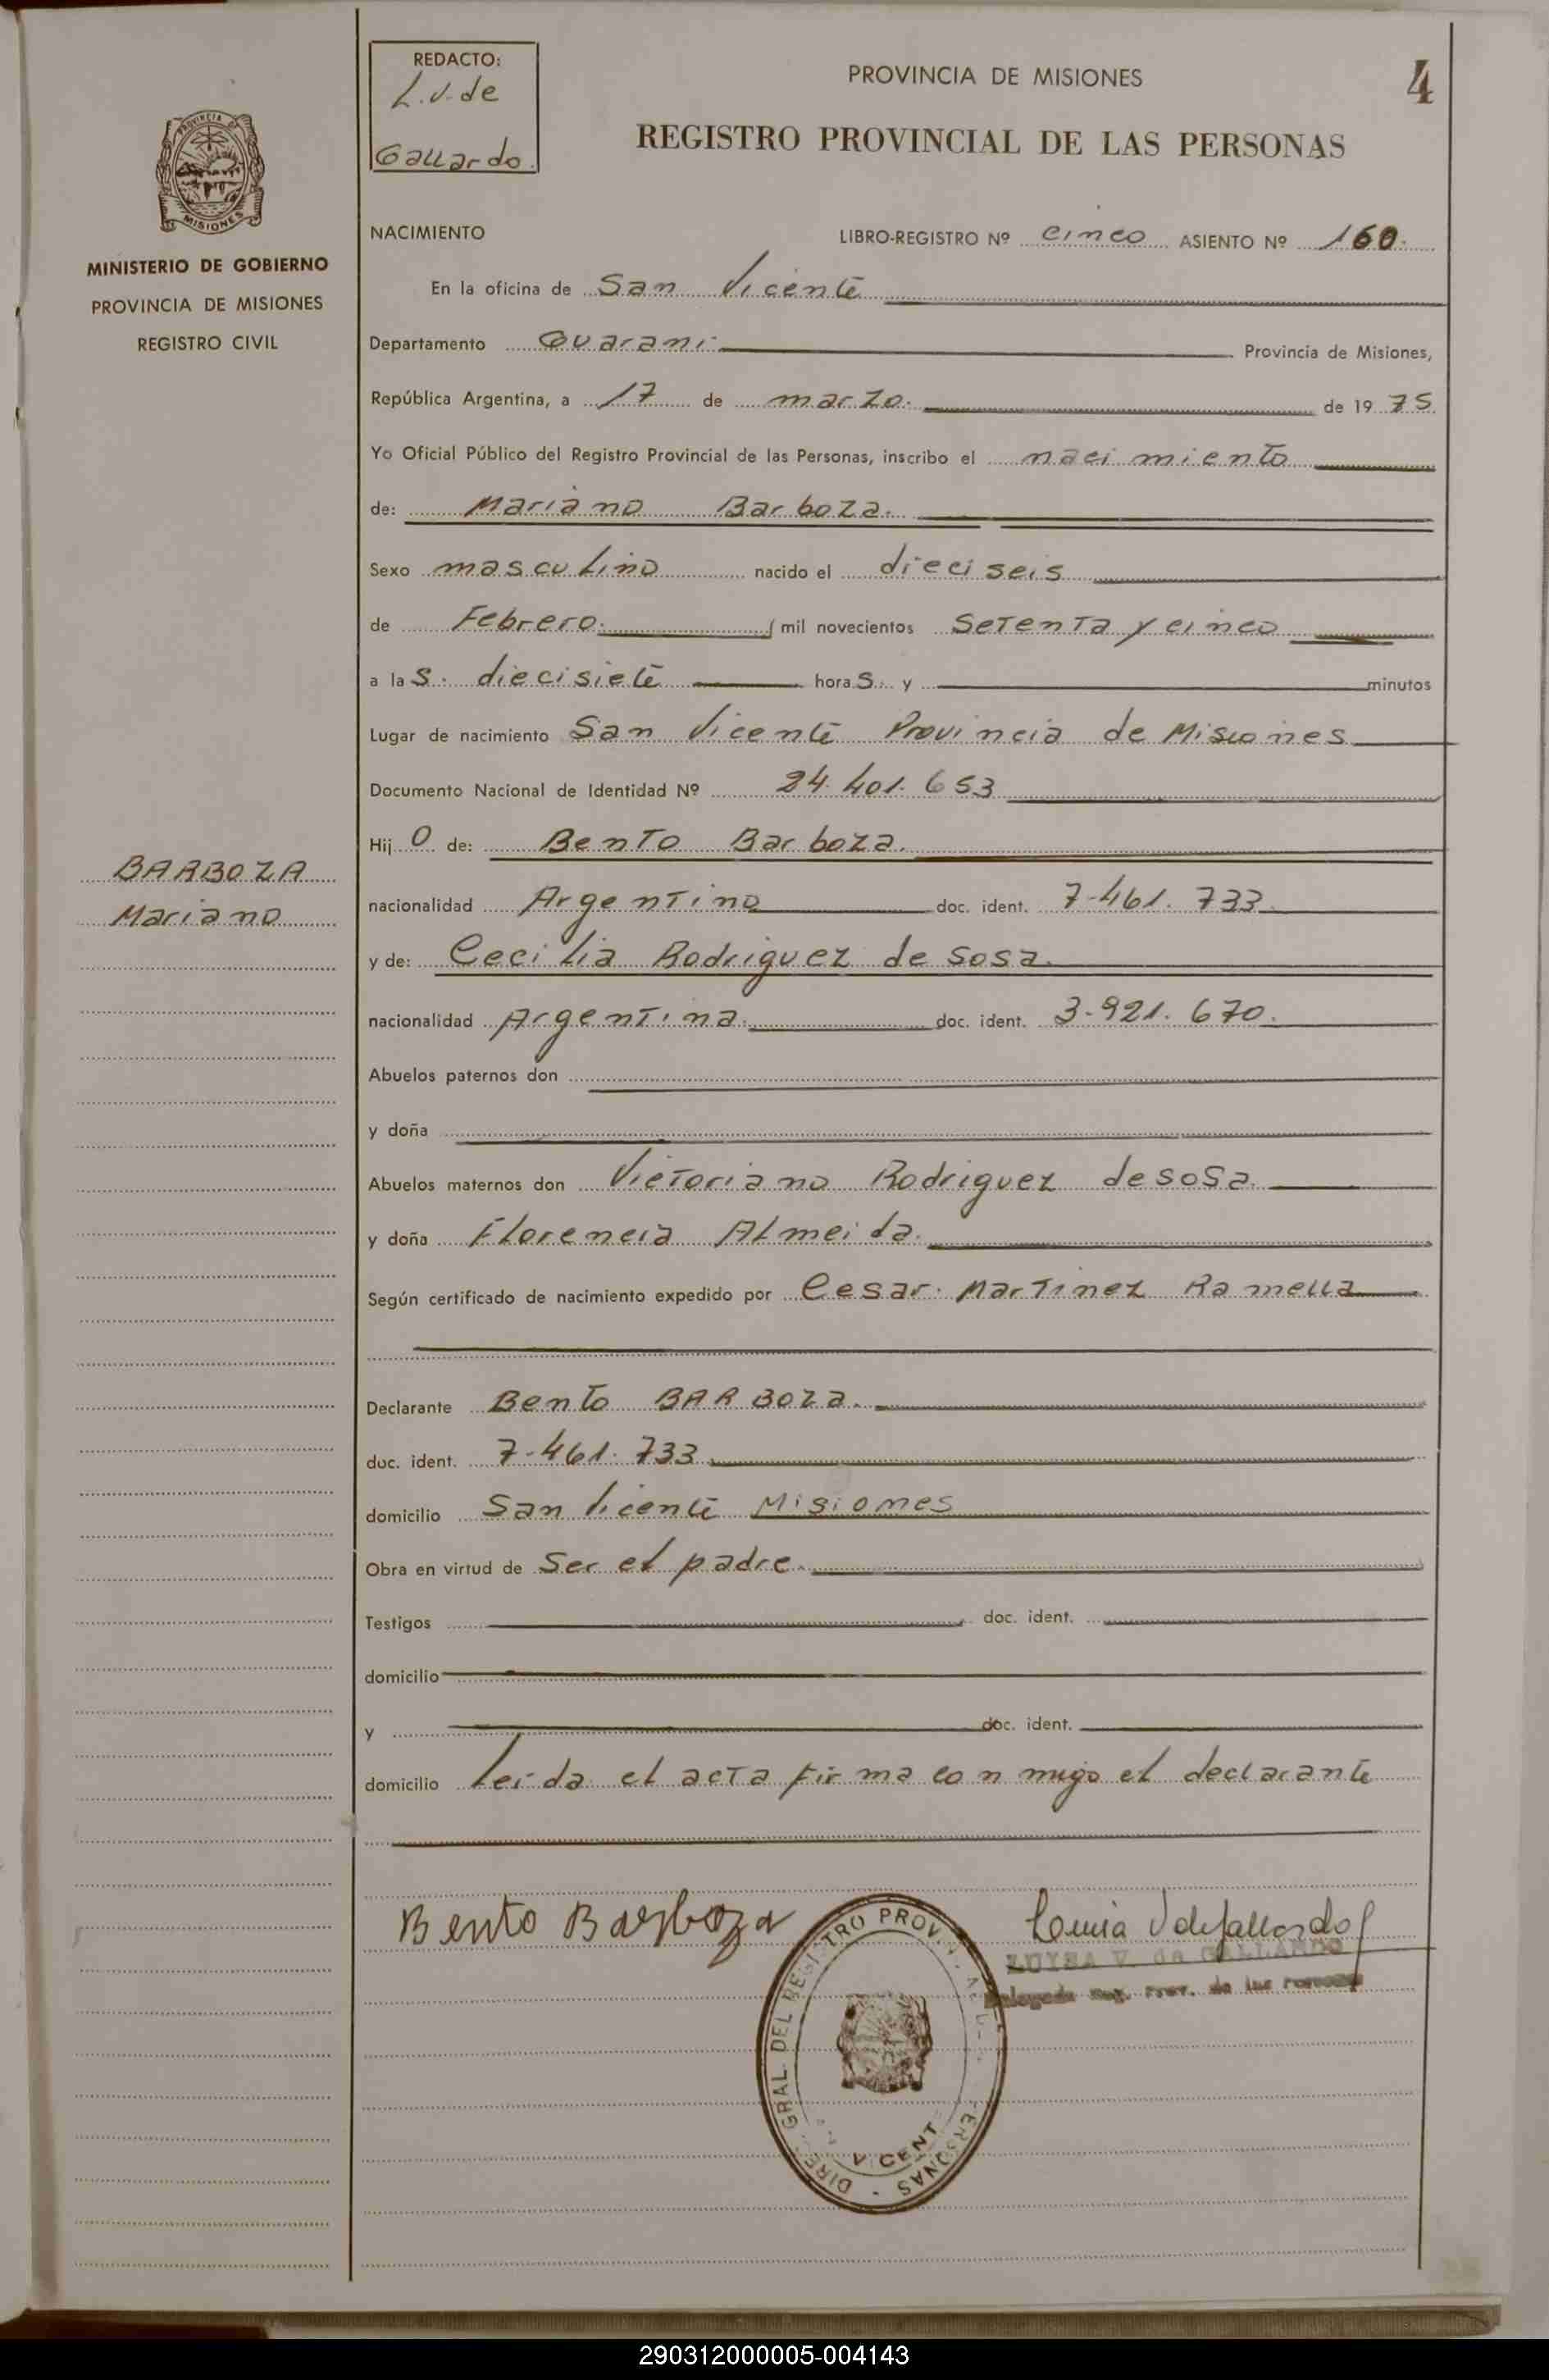 REDACTO:
L.V. de
Gallardo.
PROVINCIA DE MISIONES
4
REGISTRO PROVINCIAL DE LAS PERSONAS
PROVINCIA DE
MISIONES
MINISTERIO DE GOBIERNO
PROVINCIA DE MISIONES
REGISTRO CIVIL
NACIMIENTO
LIBRO-REGISTRO Nº cinco ASIENTO Nº 160.
En la oficina de San Vicente
Departamento Guaraní Provincia de Misiones,
República Argentina, a 17 de marzo. de 1975.
Yo Oficial Público del Registro Provincial de las Personas, inscribo el nacimiento
de: Mariano Barboza.
Sexo masculino nacido el dieciseis
de Febrero. mil novecientos Setenta y cinco
a las. diecisiete horas. y minutos
Lugar de nacimiento San Vicente Provincia de Misiones
Documento Nacional de Identidad Nº 24.401.653
Hijo de: Bento Barboza.
BARBOZA
Mariano
nacionalidad Argentino doc. ident. 7.461.733.
y de: Cecilia Rodriguez de Sosa.
nacionalidad Argentina. doc. ident. 3.921.670.
Abuelos paternos don
y doña
Abuelos maternos don Victoriano Rodriguez de Sosa.
y doña Florencia Almeida.
Según certificado de nacimiento expedido por Cesar Martinez Ramella
Declarante Bento BARBOZA.
doc. ident. 7.461.733
domicilio San Vicente Misiones
Obra en virtud de Ser el padre.
Testigos doc. ident.
domicilio
y doc. ident.
domicilio Leida el acta firma conmigo el declarante
Bento Barboza
LUISA V. de GALLARDO
Delegada Reg. Prov. de las Personas
290312000005-004143